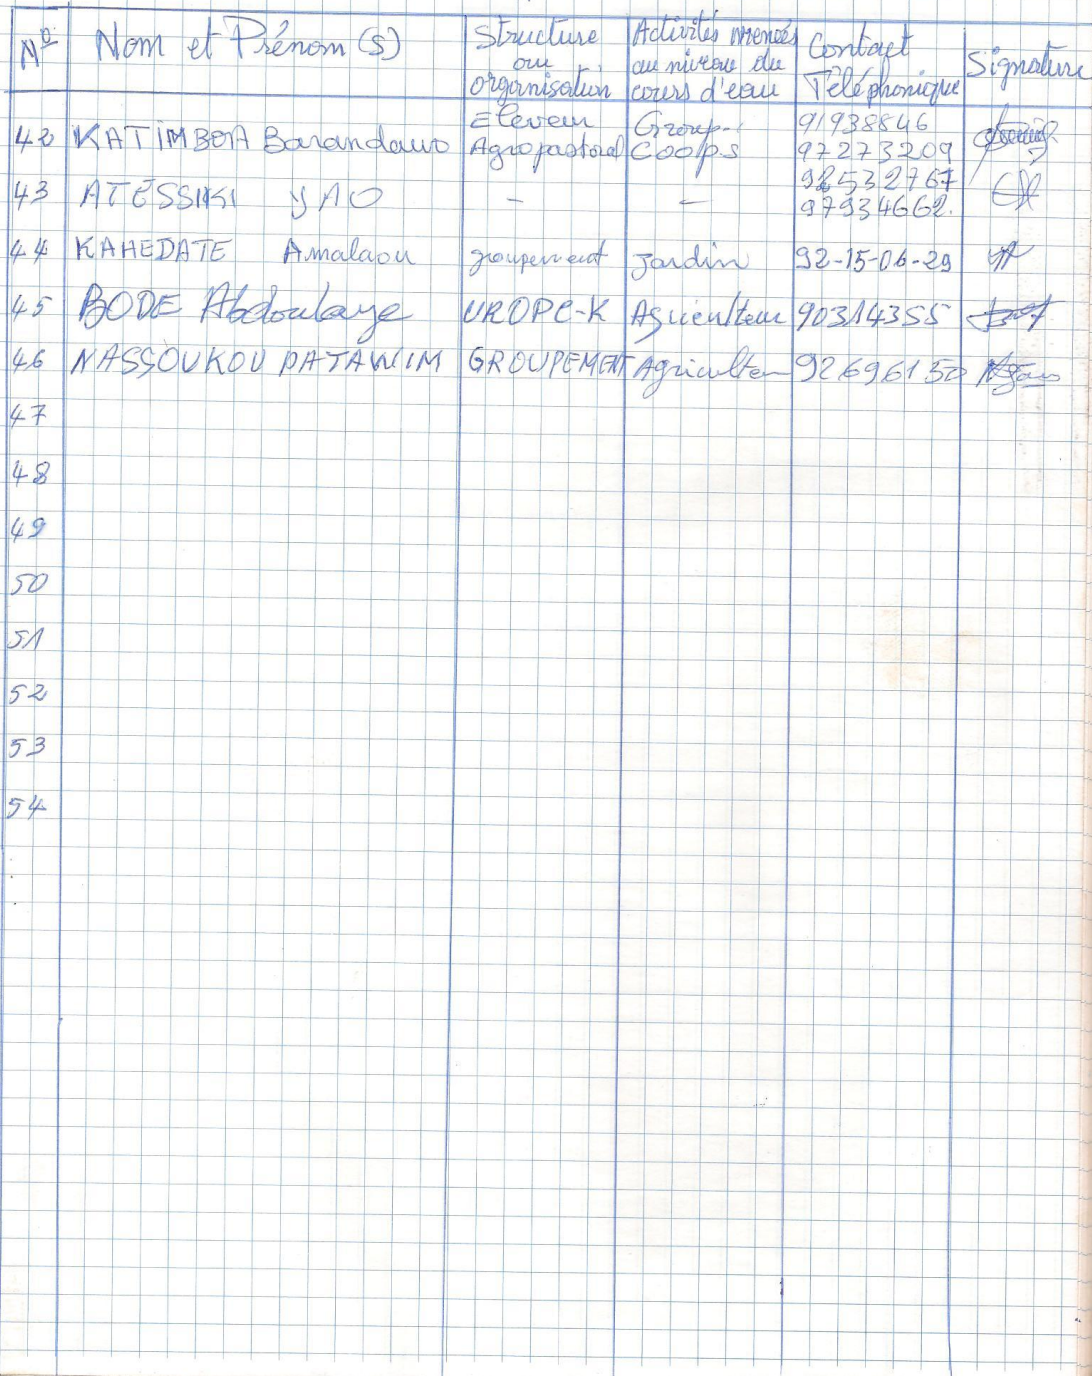 N° Nom et Prénom (s) Structure ou organisation Activités menées au niveau du cours d'eau Contact Téléphonique Signature
42 KATIMBOA Barandawo Eleveur Agropastoral Group. Coops 91938846 97273209
43 ATESSIKI YAO - - 92532767 97934662.
44 KAHEDATE Amalaou groupement Jardin 92-15-06-29
45 BODE Abdoulaye UROPC-K Agriculteur 90314355
46 NASSOUKOU PATAWIM GROUPEMENT Agriculteur 92696150
47
48
49
50
51
52
53
54